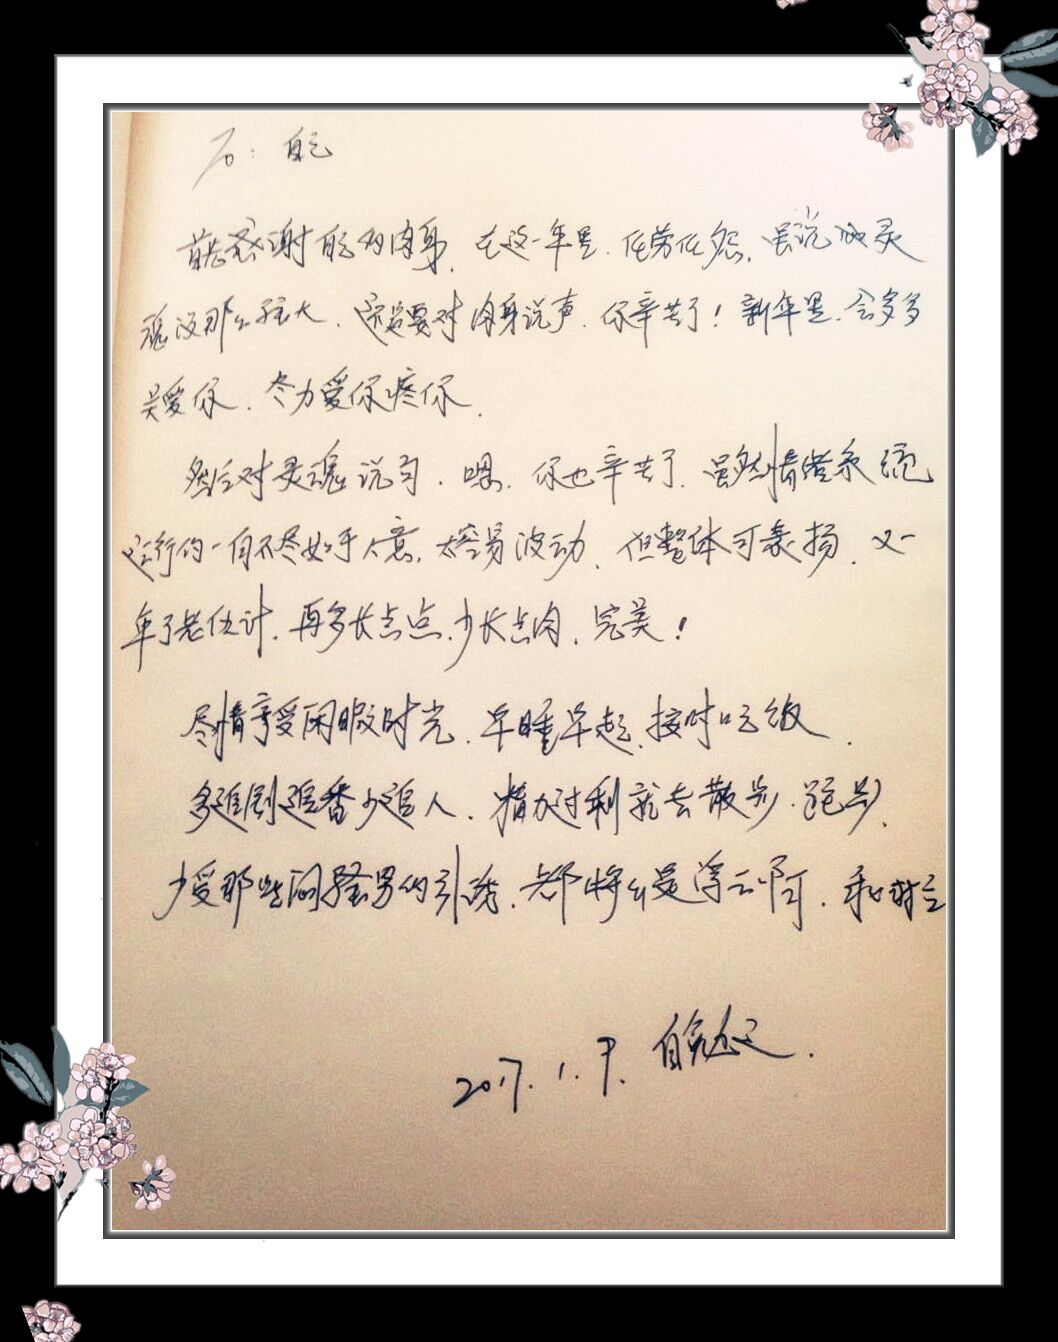 自己
首先感谢自己的肉身,在这一年里,任劳任怨,虽说灵
魂没那么强大,还是要对肉身说声,你辛苦了!新年里,会多多
关爱你,尽力爱你疼你.
然后对灵魂说句,嗯,你也辛苦了,虽然情绪系统
运行的一直不尽如人意,太容易波动,但整体可表扬,又一
年了老伙计,再多长点点,少长点肉,完美!
尽情享受闲暇时光,早睡早起,按时吃饭.
多追剧追番少追人,精力过剩就去散步,跑步,
少受那些闷骚男的引诱,都特么是浮云啊,
2017.1.7.